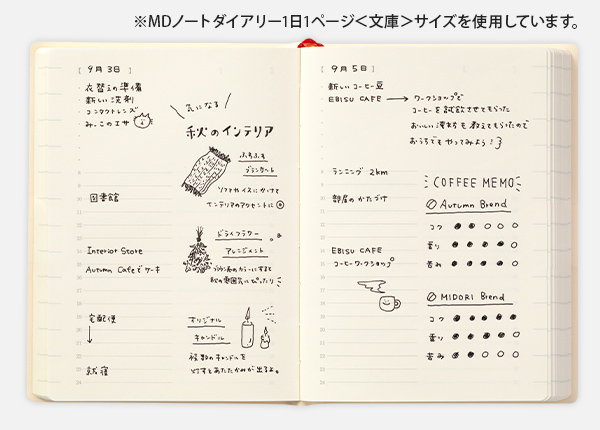 ※MDノートダイアリー1日1ページ<文庫>サイズを使用しています。
[ 9月3日 ]
・衣替えの準備
・新しい洗剤
・コンタクトレンズ
・みーこのエサ
気になる
秋のインテリア
ふちふす
ブランケット
ソファやイスにかけて
インテリアのアクセントに◎
図書館
ドライフラワー
アレンジメント
ブラウン系のカラーにすると
秋の雰囲気にぴったり
Interior Store
Autumn Cafeでケーキ
宅配便
オリジナル
キャンドル
複数のキャンドルを
灯すとあたたかみが出るよ。
就寝
[ 9月5日 ]
・新しいコーヒー豆
・EBISU CAFE → ワークショップで
コーヒーを試飲させてもらった
おいしい淹れ方も教えてもらったので
おうちでもやってみよう!
ランニング 2km
部屋のかたづけ
COFFEE MEMO
Autumn Brend
コク ●●○○○
香り ●●●●○
苦み ●●●●○
EBISU CAFE
コーヒーワークショップ
MIDORI Brend
コク ●●●●●
香り ●●●●○
苦み ●●○○○